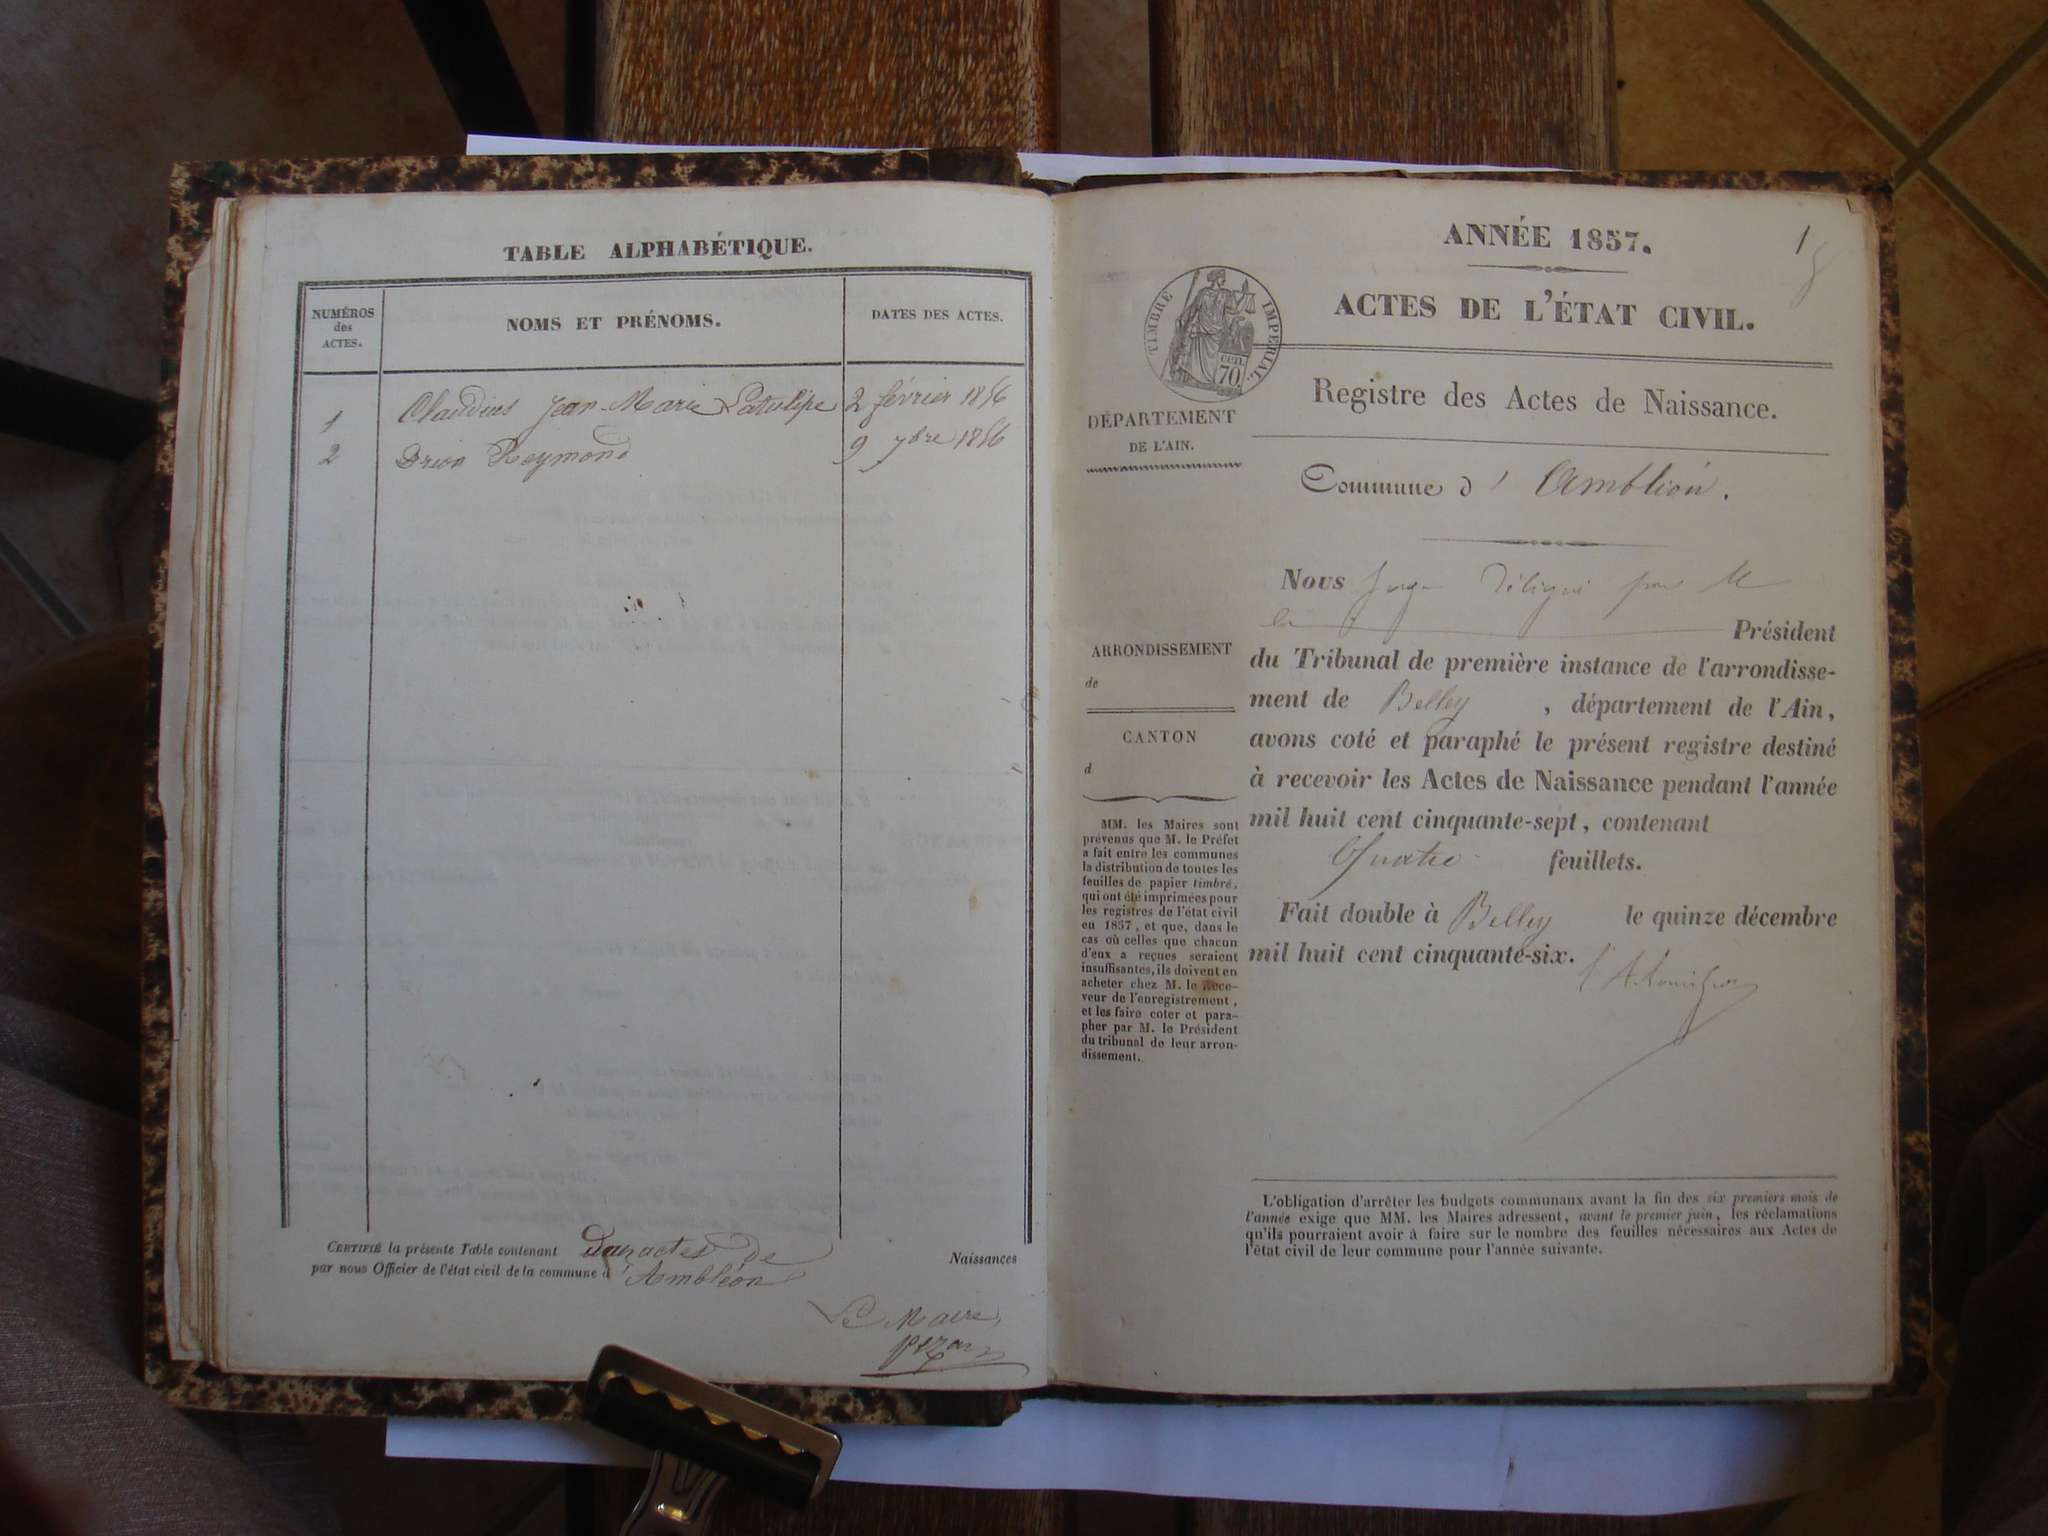 TABLE ALPHABÉTIQUE.
NUMÉROS
des
ACTES.
NOMS ET PRÉNOMS.
DATES DES ACTES.
1 Claudius Jean-Marie Latulipe 2 février 1856
2 Drion Reymond 9 7bre 1856
CERTIFIÉ la présente Table contenant deux actes de Naissances
par nous Officier de l'état civil de la commune d' Ambléon
Le Maire,
1
ANNÉE 1857.
ACTES DE L'ÉTAT CIVIL.
TIMBRE IMPÉRIAL.
cen.
70.
DÉPARTEMENT
DE L'AIN.
Registre des Actes de Naissance.
Commune d' Ambléon.
ARRONDISSEMENT
de
CANTON
d
MM. les Maires sont
prévenus que M. le Préfet
a fait entre les communes
la distribution de toutes les
feuilles de papier timbré,
qui ont été imprimées pour
les registres de l'état civil
en 1857, et que, dans le
cas où celles que chacun
d'eux a reçues seraient
insuffisantes, ils doivent en
acheter chez M. le Rece-
veur de l'enregistrement,
et les faire coter et para-
pher par M. le Président
du tribunal de leur arron-
dissement.
Nous Juge délégué pour M
le Président
du Tribunal de première instance de l'arrondisse-
ment de Belley, département de l'Ain,
avons coté et paraphé le présent registre destiné
à recevoir les Actes de Naissance pendant l'année
mil huit cent cinquante-sept, contenant
Quatre feuillets.
Fait double à Belley le quinze décembre
mil huit cent cinquante-six.
L'obligation d'arrêter les budgets communaux avant la fin des six premiers mois de
l'année exige que MM. les Maires adressent, avant le premier juin, les réclamations
qu'ils pourraient avoir à faire sur le nombre des feuilles nécessaires aux Actes de
l'état civil de leur commune pour l'année suivante.